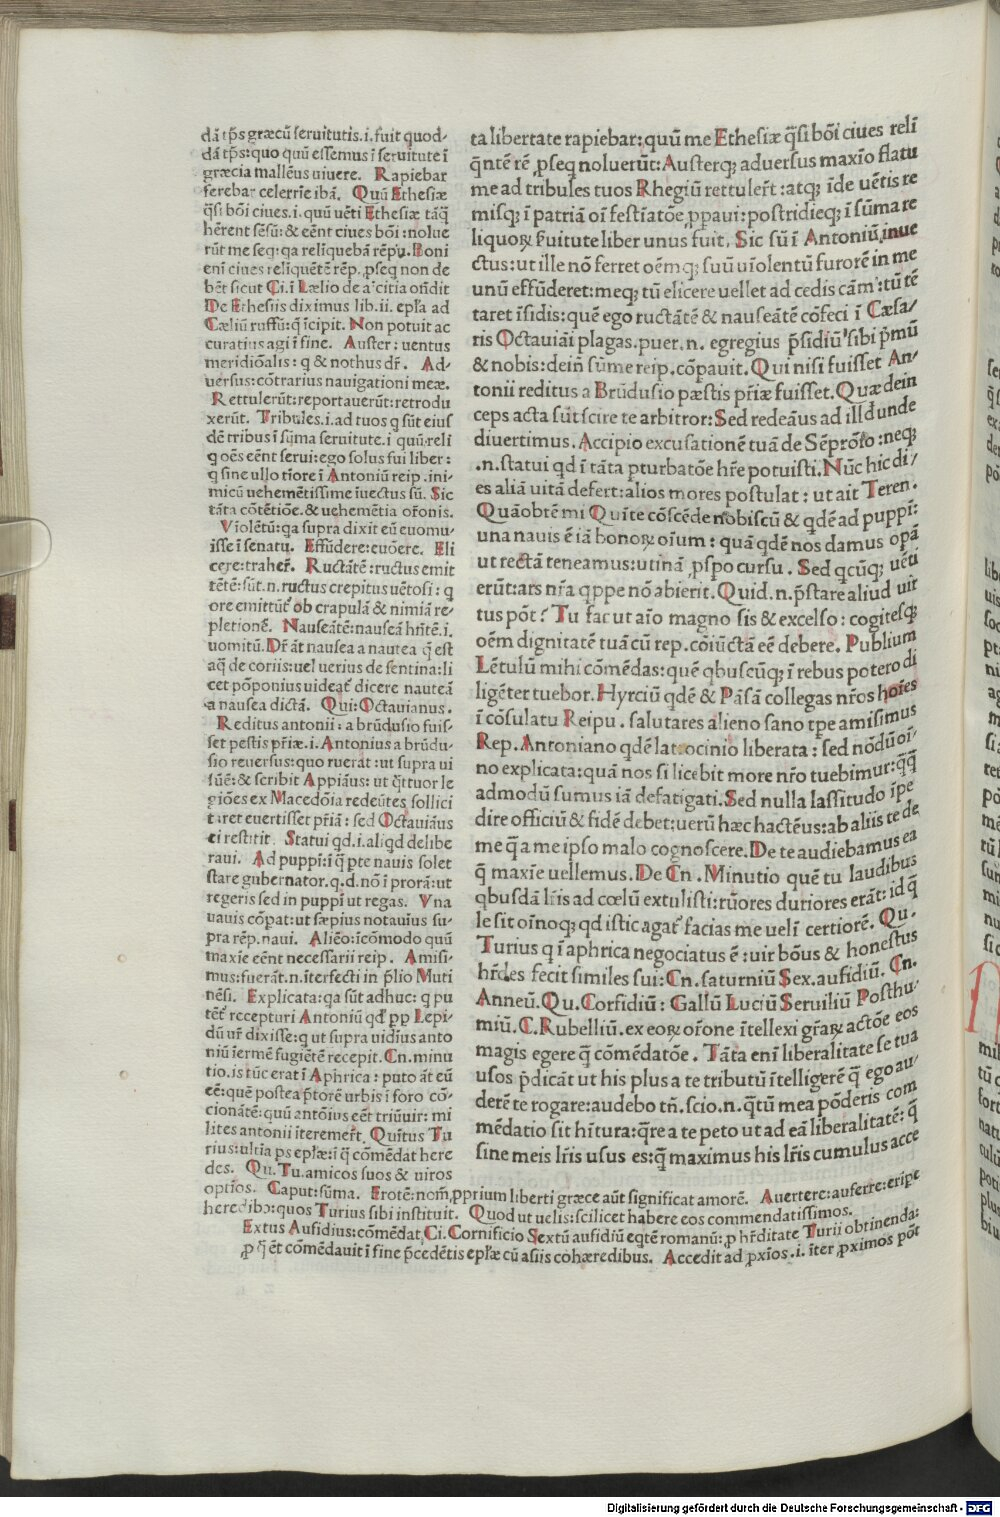 dā tp̄s græcū seruitutis.i.fuit quod-
dā tp̄s:quo quū essemus ī seruitute ī
græcia mallēus uiuere. Rapiebar
ferebar celerrīe ibā. Quū Ethesiæ
q̄si bōi ciues.i.quū uēti Ethesiæ tāq̄
hērent sēsū:& eēnt ciues bōi:nolue
rūt me seq:qa relīquebā rēpu.Boni
enī ciues relīquētē rēp. ꝓseq non de
bēt sicut Ci.ī Lælio de amicitia oñdit
De Ethesiis diximus lib.ii. epl̄a ad
Cæliū ruffū:q̄ īcipit. Non potuit ac
curatius agi ī fine. Auster: uentus
meridiōalis: q & nothus dr̄. Ad-
uersus:cōtrarius nauigationi meæ.
Rettulerūt:reportauerūt:retrodu
xerūt. Tribules.i.ad tuos q sūt eius
dē tribus ī sūma seruitute.i quū reli
q oēs eēnt serui:ego solus fui liber:
q sine ullo tīore ī Antoniū reip.ini-
micū uehemētissime īuectus sū. Sic
tāta cōtētiōe.& uehemētia or̄onis.
Violētū:qa supra dixit eū euomu-
isse ī senatu. Effūdere:euōere. Eli
cere:traher̄. Ructātē:ructus emit
tētē:sūt.n.ructus crepitus uētosi: q
ore emittūt ob crapulā & nimiā re-
pletionē. Nauseātē:nauseā hn̄tē.i.
uomitū.Dr̄ āt nausea a nautea q̄ est
aq̄ de coriis:uel uerius de sentina:li
cet pōponius uideat dicere nauteā
a nausea dictā. Qui:Octauianus.
Reditus antonii:a brūdusio fuis-
set pestis pr̄iæ.i.Antonius a brūdu-
sio reuersus:quo ruerat:ut supra ui
sūē:& scribit Appiāus: ut q̄ttuor le
giōes ex Macedōia redeūtes sollici
taret euertisset pr̄iā: sed Octauiāus
ei restitit. Statui qd.i.aliqd delibe
raui. Ad puppi:ī q̄ pte nauis solet
stare gubernator.q.d.nō ī prorā:ut
regeris sed in puppi ut regas. Vna
nauis cōpat:ut sæpius notauius su-
pra rēp.naui. Aliēo:īcōmodo quū
maxīe eēnt necessarii reip. Amisi-
mus:fuerāt.n.īterfecti in p̄lio Muti
nēsi. Explicata:qa sūt adhuc: q pu
tēt recepturi Antoniū qd pp Lepi-
dū ur̄ dixisse:q ut supra uidius anto
niū iermē fugiētē recepit. Cn.minu
tio.is tūc erat ī Aphrica: puto āt eū
eē:quē postea p̄torē urbis ī foro cō-
cionātē:quū antōius eēt triūuir: mi
lites antonii īteremer̄t. Quītus Tu
rius:ultīa ps epl̄æ:ī q̄ cōmēdat here
des. Qu.Tu.amicos suos & uiros
optīos. Caput:sūma. Erotē:nom̄,ꝓprium liberti græce aūt significat amorē. Auertere:auferre:eripe
heredibꝰ:quos Turius sibi instituit. Quod ut uelis:scilicet habere eos commendatissimos.
Extus Aufidius:cōmēdat Ci.Cornificio Sextū aufidiū eqtē romanū:ꝓ hr̄ditate Turii obtinenda:
ꝓ q̄ ēt cōmēdauit ī fine p̄cedētis epl̄æ cū aliis cohæredibus. Accedit ad ꝓxīos.i.īter ꝓximos pōt
ta libertate rapiebar:quū me Ethesiæ q̄si bōi ciues reli
q̄ntē rē ꝓseq noluerūt:Austerq; aduersus maxīo flatu
me ad tribules tuos Rhegiū rettuler̄t:atq; īde uētis re
misq; ī patriā oī festīatōe ꝓpaui:postridieq; ī sūma re
liquoꝝ ẜuitute liber unus fuit. Sic sū ī Antoniū inue
ctus:ut ille nō ferret oēmq; suū uiolentū furorē in me
unū effūderet:meq; tū elicere uellet ad cedis cām:tū tē
taret īsidis:quē ego ructātē & nauseātē cōfeci ī Cæsa-
ris Octauiāi plagas.puer.n. egregius p̄sidiū sibi p̄mū
& nobis:dein̄ sūme reip.cōpauit.Qui nisi fuisset An-
tonii reditus a Brūdusio pæstis pr̄iæ fuisset.Quæ dein
ceps acta sūt scire te arbitror:Sed redeāus ad illd unde
diuertimus. Accipio excusationē tuā de Sēprōīo:neq;
.n.statui qd ī tāta pturbatōe hr̄e potuisti.Nūc hic di-
es aliā uitā defert:alios mores postulat: ut ait Teren.
Quāobtē mi Quīte cōscēde nobiscū & qdē ad puppi:
una nauis ē iā bonoꝝ oīum: quā qdē nos damus opā
ut rectā teneamus:utinā ꝓspo cursu. Sed qcūq; uēti
erūt:ars nr̄a qppe nō abierit. Quid.n.p̄stare aliud uir
tus pōt? Tu fac ut aīo magno sis & excelso: cogitesq;
oēm dignitatē tuā cū rep.cōiūctā eē debere. Publium
Lētulū mihi cōmēdas:quē qbuscūq; ī rebus potero di
ligēter tuebor. Hyrciū qdē & Pāsā collegas nr̄os hoīes
ī cōsulatu Reipu. salutares alieno sano tpe amisimus
Rep. Antoniano qdē latrocinio liberata: sed nōdū oī-
no explicata:quā nos si licebit more nr̄o tuebimur:q̄q̄
admodū sumus iā defatigati.Sed nulla lassitudo īpe
dire officiū & fidē debet:uerū hæc hactēus:ab aliis te de
me q̄ a me ipso malo cognoscere.De te audiebamus ea
q̄ maxīe uellemus. De Cn. Minutio quē tu laudibus
qbusdā lr̄is ad cœlū extulisti:rūores duriores erāt:id q̄
le sit oīnoq; qd istic agat facias me uelī certiorē. Qu.
Turius q ī aphrica negociatus ē:uir bōus & honestus
hr̄des fecit similes sui:Cn.saturniū Sex.aufidiū. Cn.
Anneū. Qu. Corfidiū: Gallū Luciū Seruiliū Posthu-
miū.C.Rubelliū.ex eoꝝ or̄one ītellexi gr̄aꝝ actōe eos
magis egere q̄ cōmēdatōe. Tāta enī liberalitate se tua
usos p̄dicāt ut his plus a te tributū ītelligerē q̄ ego au-
derē te rogare:audebo tn̄.scio.n.q̄tū mea pōderis com
mēdatio sit hītura:q̄re a te peto ut ad eā liberalitatē:q̄
sine meis lr̄is usus es:q̄ maximus his lr̄is cumulus acce
Digitalisierung gefördert durch die Deutsche Forschungsgemeinschaft - DFG